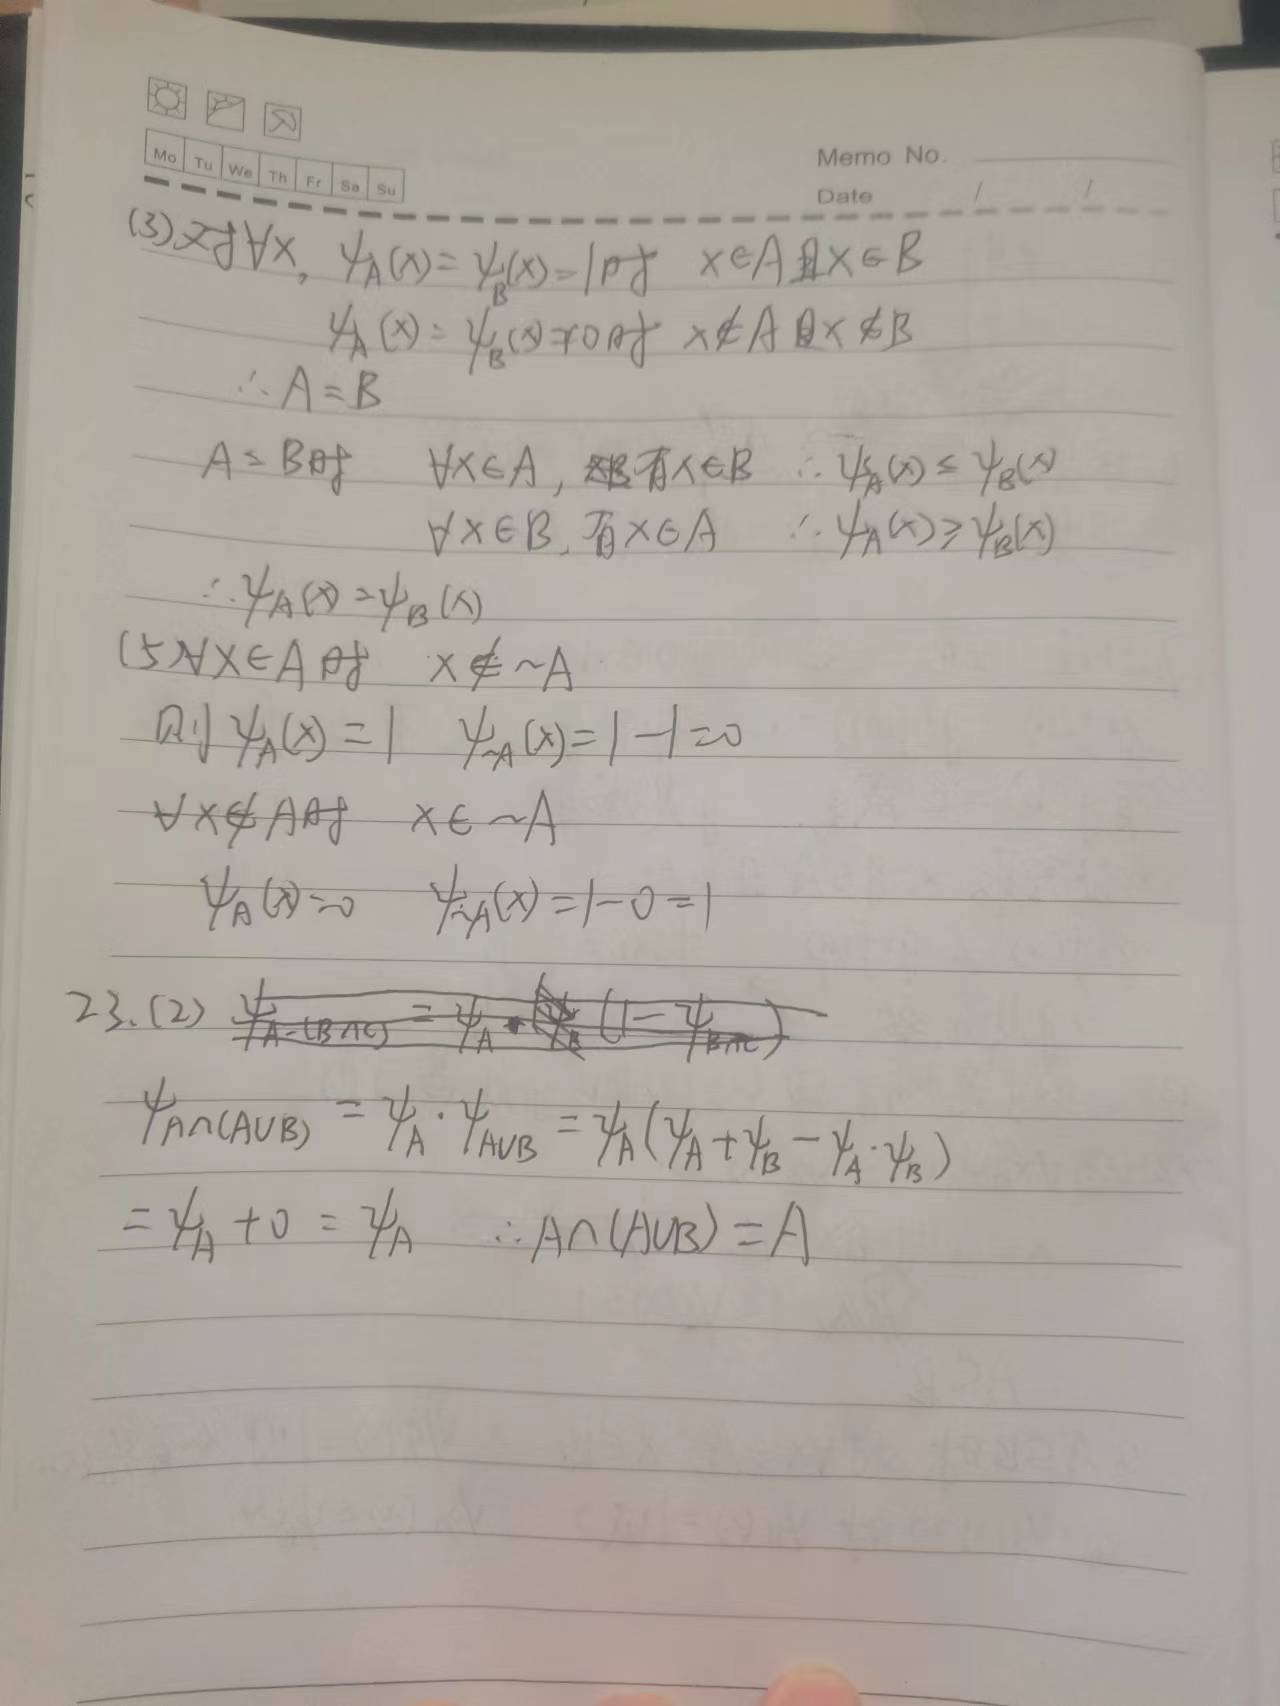 Mo Tu We Th Fr Sa Su
Memo No.
Date / /
(3)对∀x, ψ_A(x)=ψ_B(x)=1时 x∈A且x∈B
ψ_A(x)=ψ_B(x)=0时 x∉A且x∉B
∴A=B
A=B时 ∀x∈A, 有x∈B ∴ψ_A(x)≤ψ_B(x)
∀x∈B, 有x∈A ∴ψ_A(x)≥ψ_B(x)
∴ψ_A(x)=ψ_B(x)
(5)∀x∈A时 x∉~A
则ψ_A(x)=1 ψ_~A(x)=1-1=0
∀x∉A时 x∈~A
ψ_A(x)=0 ψ_~A(x)=1-0=1
23.(2) ψ_A-(B∩C) = ψ_A · (1-ψ_B∩C)
ψ_A∩(A∪B) = ψ_A·ψ_A∪B = ψ_A(ψ_A+ψ_B-ψ_A·ψ_B)
=ψ_A+0=ψ_A ∴A∩(A∪B)=A